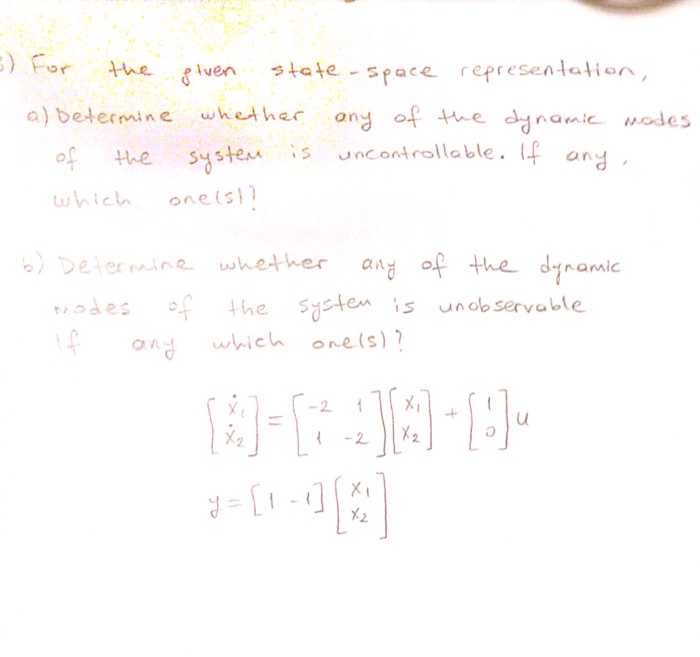 ) For the given state-space representation,
a) Determine whether any of the dynamic modes
of the system is uncontrollable. If any,
which one(s)?
b) Determine whether any of the dynamic
modes of the system is unobservable
If any which one(s)?
[ẋ₁ ẋ₂] = [-2 1 1 -2] [x₁ x₂] + [1 0] u
y = [1 -1] [x₁ x₂]